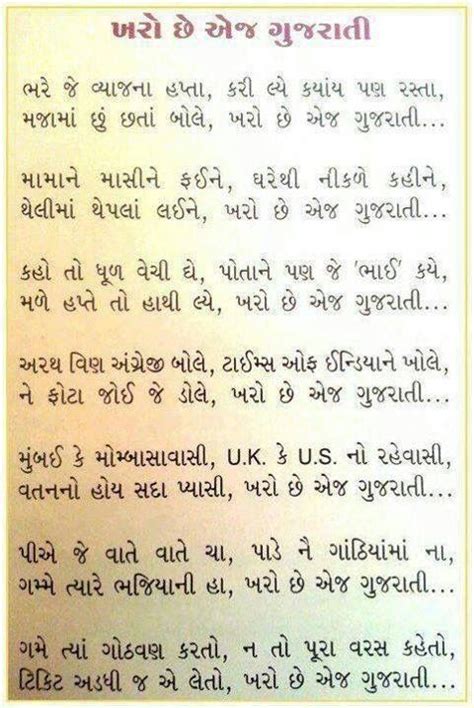 ખરો છે એજ ગુજરાતી
ભરે જે વ્યાજના હપ્તા, કરી લ્યે કયાંય પણ રસ્તા,
મજામાં છું છતાં બોલે, ખરો છે એજ ગુજરાતી...
મામાને માસીને ફઈને, ઘરેથી નીકળે કહીને,
થેલીમાં થેપલાં લઈને, ખરો છે એજ ગુજરાતી...
કહો તો ધૂળ વેચી દ્યે, પોતાને પણ જે 'ભાઈ' કયે,
મળે હપ્તે તો હાથી લ્યે, ખરો છે એજ ગુજરાતી...
અરથ વિણ અંગ્રેજી બોલે, ટાઈમ્સ ઓફ ઈન્ડિયાને ખોલે,
ને ફોટા જોઈ જે ડોલે, ખરો છે એજ ગુજરાતી...
મુંબઈ કે મોમ્બાસાવાસી, U.K. કે U.S. નો રહેવાસી,
વતનનો હોય સદા પ્યાસી, ખરો છે એજ ગુજરાતી...
પીએ જે વાતે વાતે ચા, પાડે નૈ ગાંઠિયામાં ના,
ગમ્મે ત્યારે ભજિયાની હા, ખરો છે એજ ગુજરાતી...
ગમે ત્યાં ગોઠવણ કરતો, ન તો પૂરા વરસ કહેતો,
ટિકિટ અડધી જ એ લેતો, ખરો છે એજ ગુજરાતી...